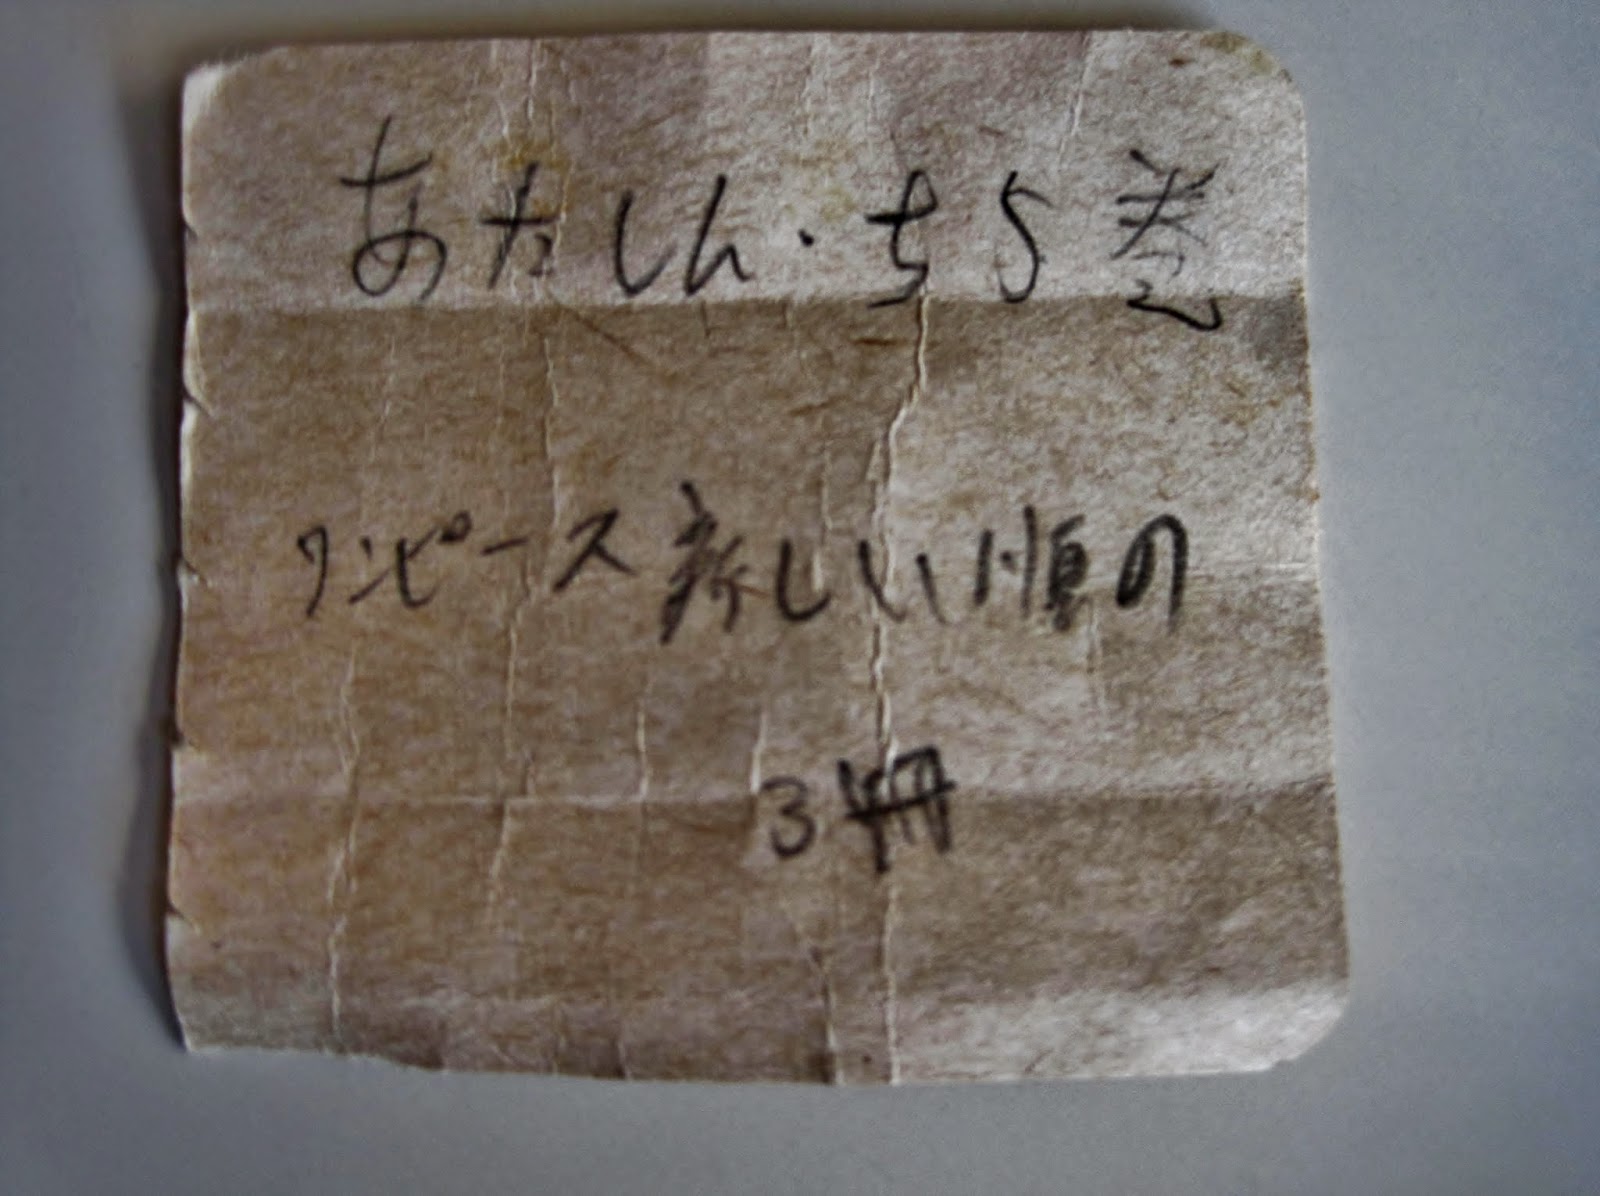 あたしん・ち5巻
ワンピース新しい順の
3冊